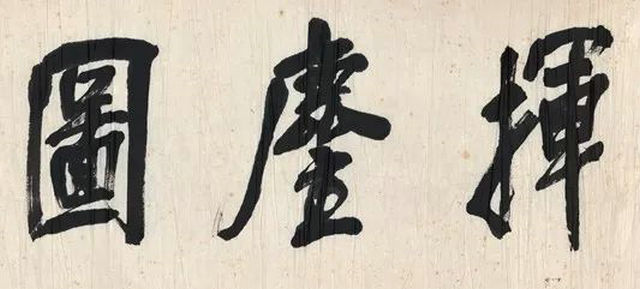 揮麈圖